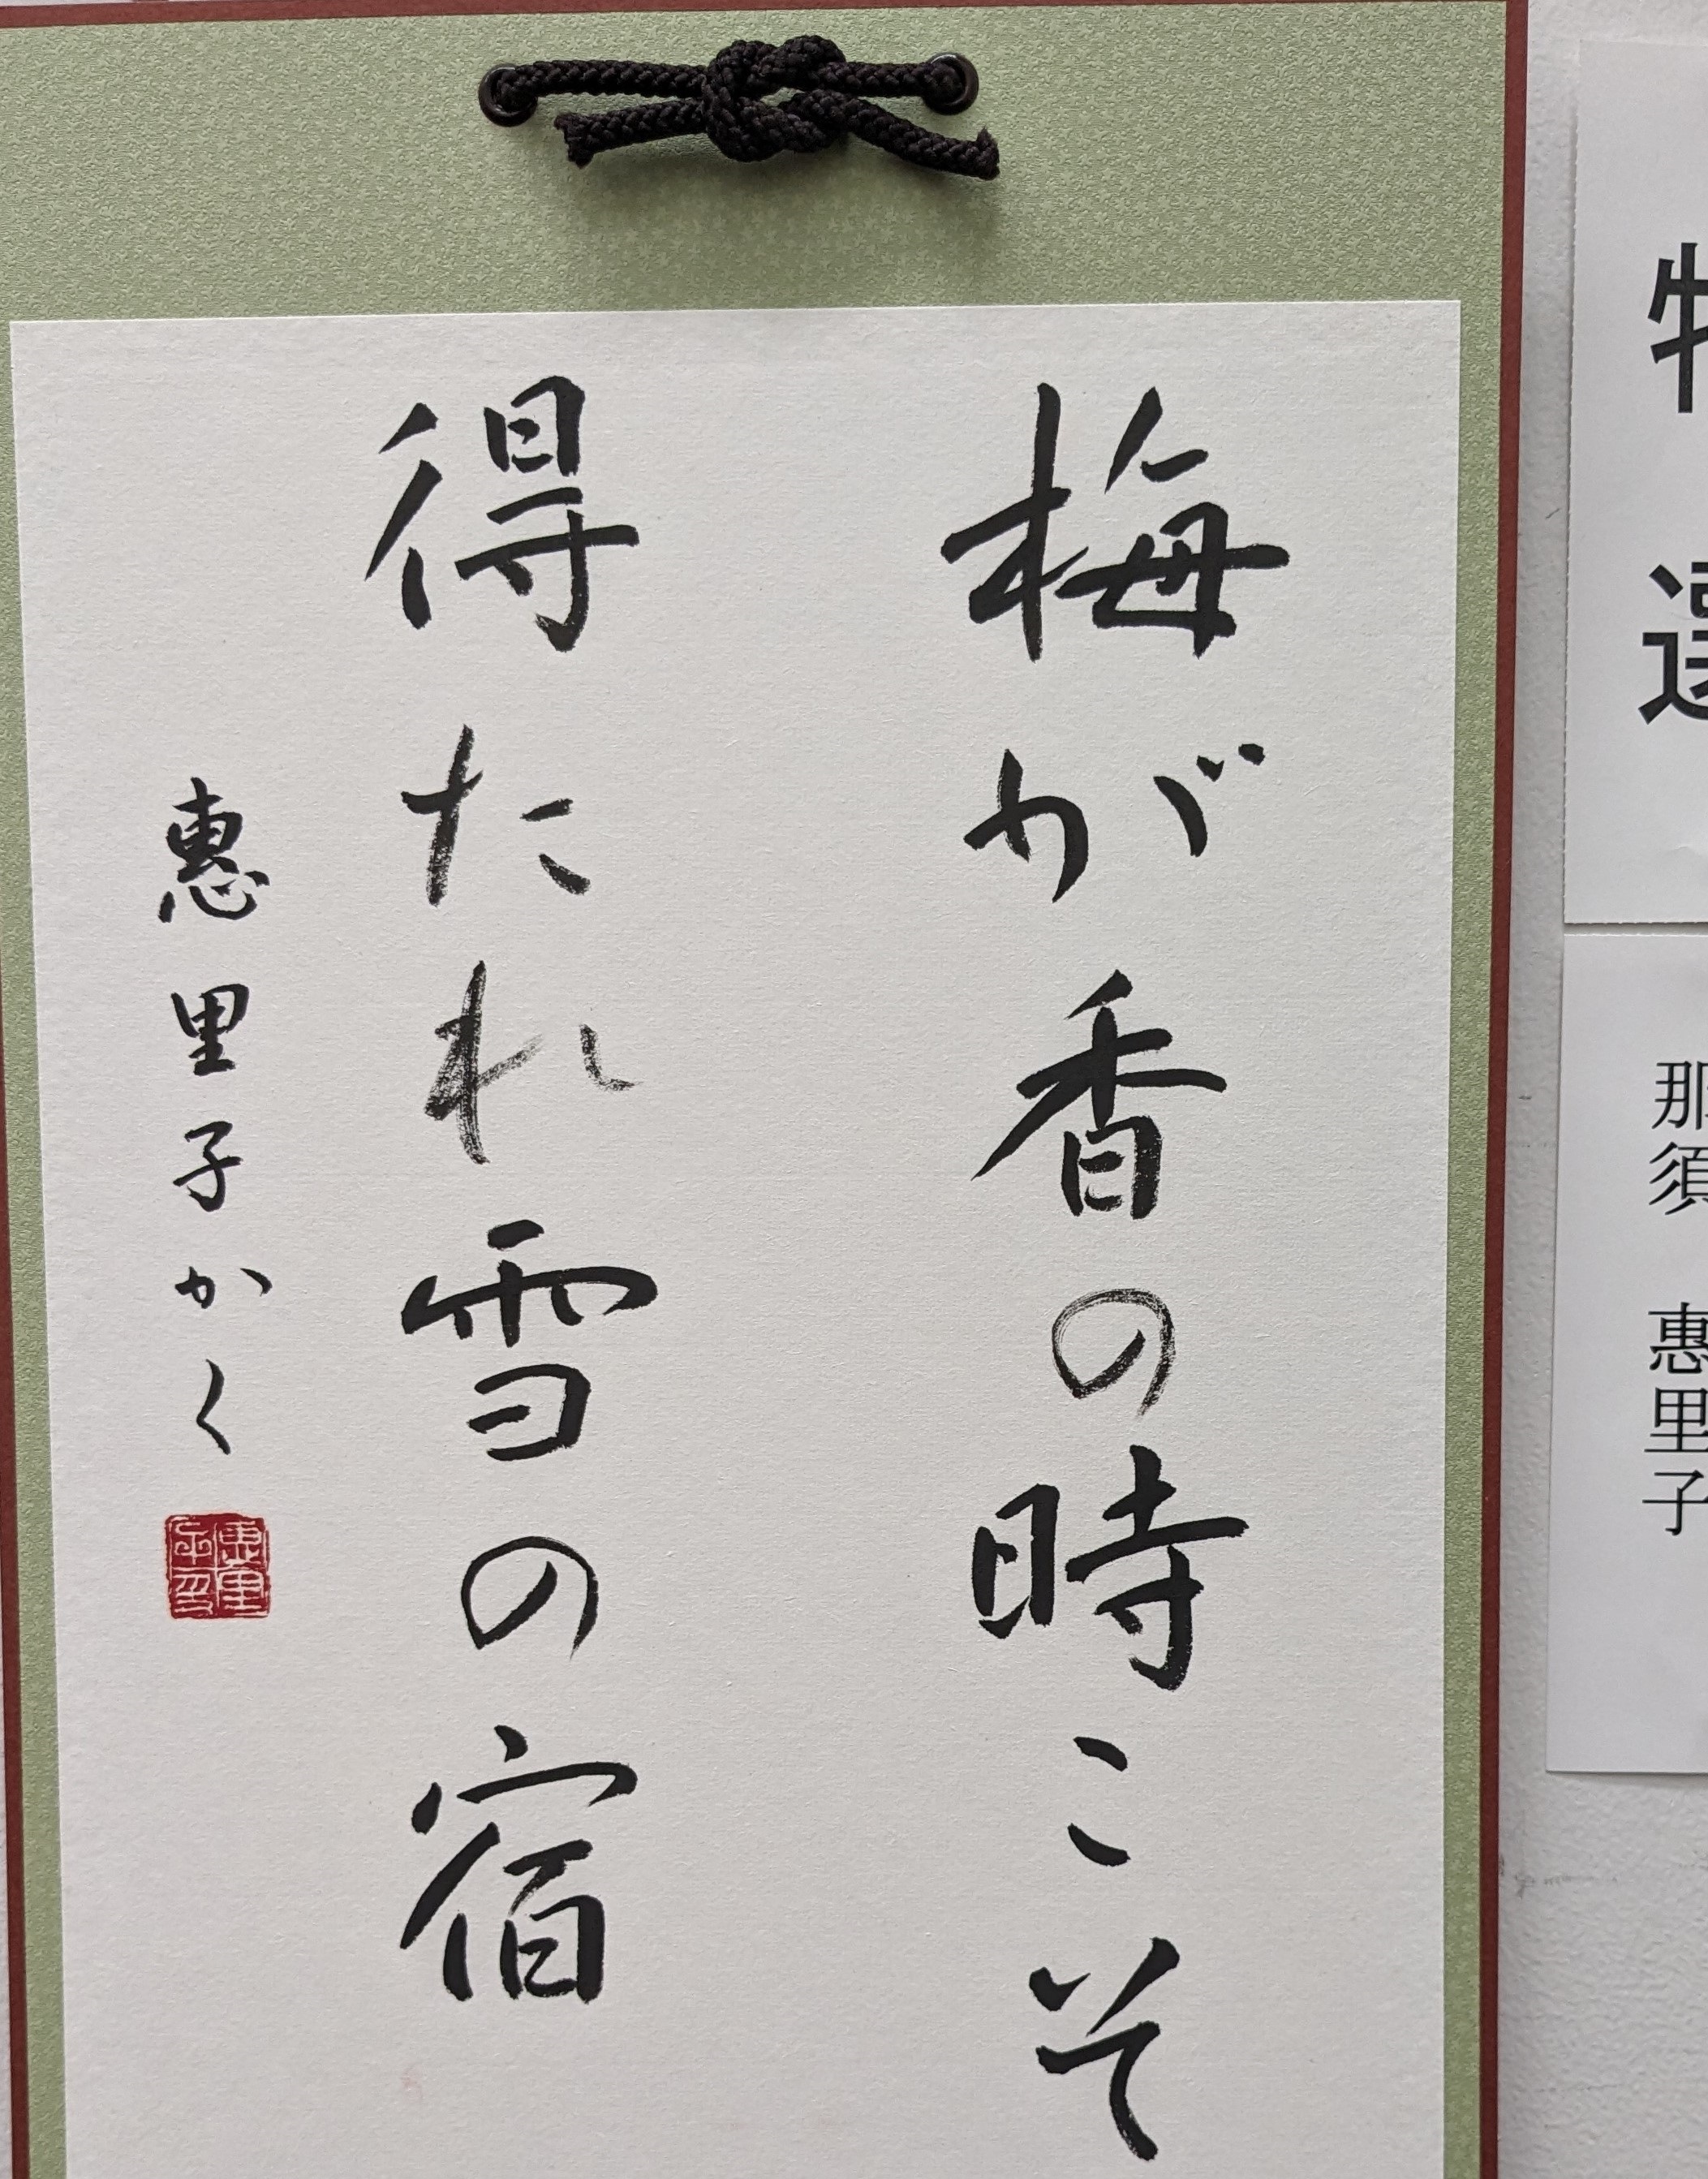 特選
那須 惠里子
梅が香の時こそ
得たれ雪の宿
惠里子かく